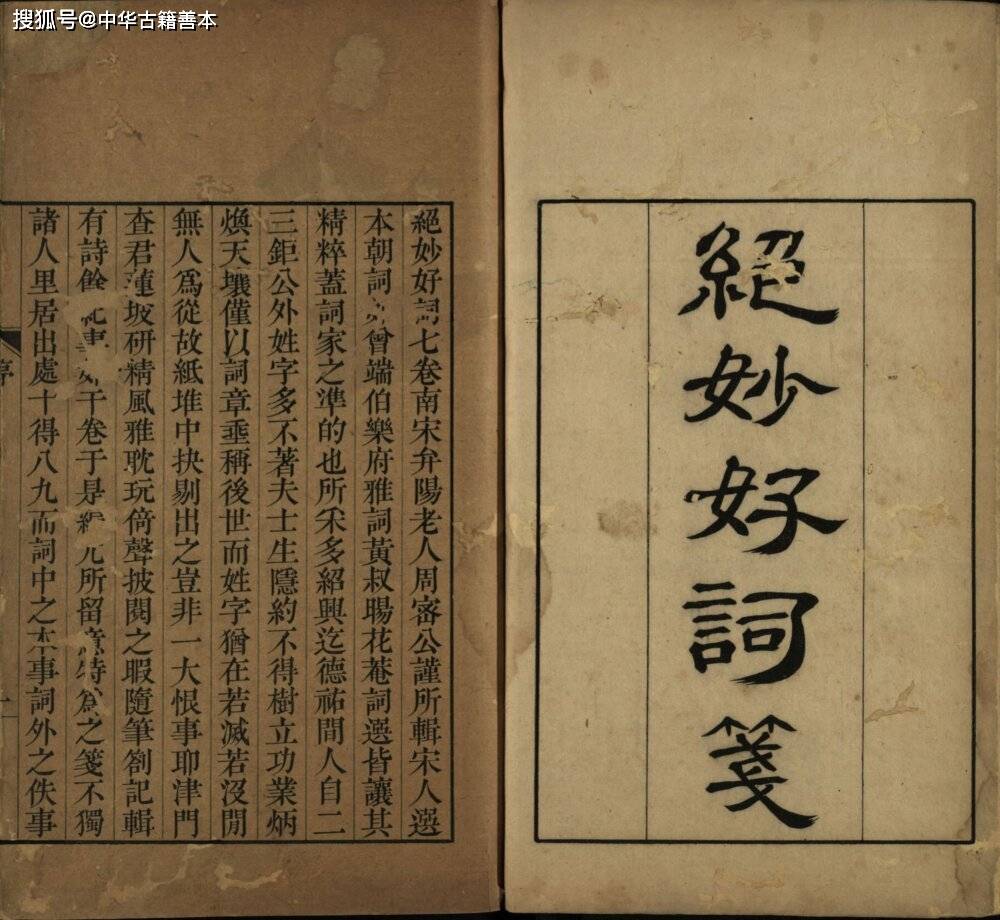 搜狐号@中华古籍善本
絕妙好詞箋
絕妙好詞七卷南宋弁陽老人周密公謹所輯宋人選
本朝詞曾端伯樂府雅詞黃叔暘花菴詞選皆讓其
精粹蓋詞家之準的也所采多紹興迄德祐間人自二
三鉅公外姓字多不著夫士生隱約不得樹立功業炳
煥天壤僅以詞章垂稱後世而姓字猶在若滅若沒閒
無人爲從故紙堆中抉剔出之豈非一大恨事耶津門
查君蓮坡研精風雅耽玩倚聲披閱之暇隨筆劄記輯
有詩餘事如干卷于是所留意特爲之箋不獨
諸人里居出處十得八九而詞中之本事詞外之佚事